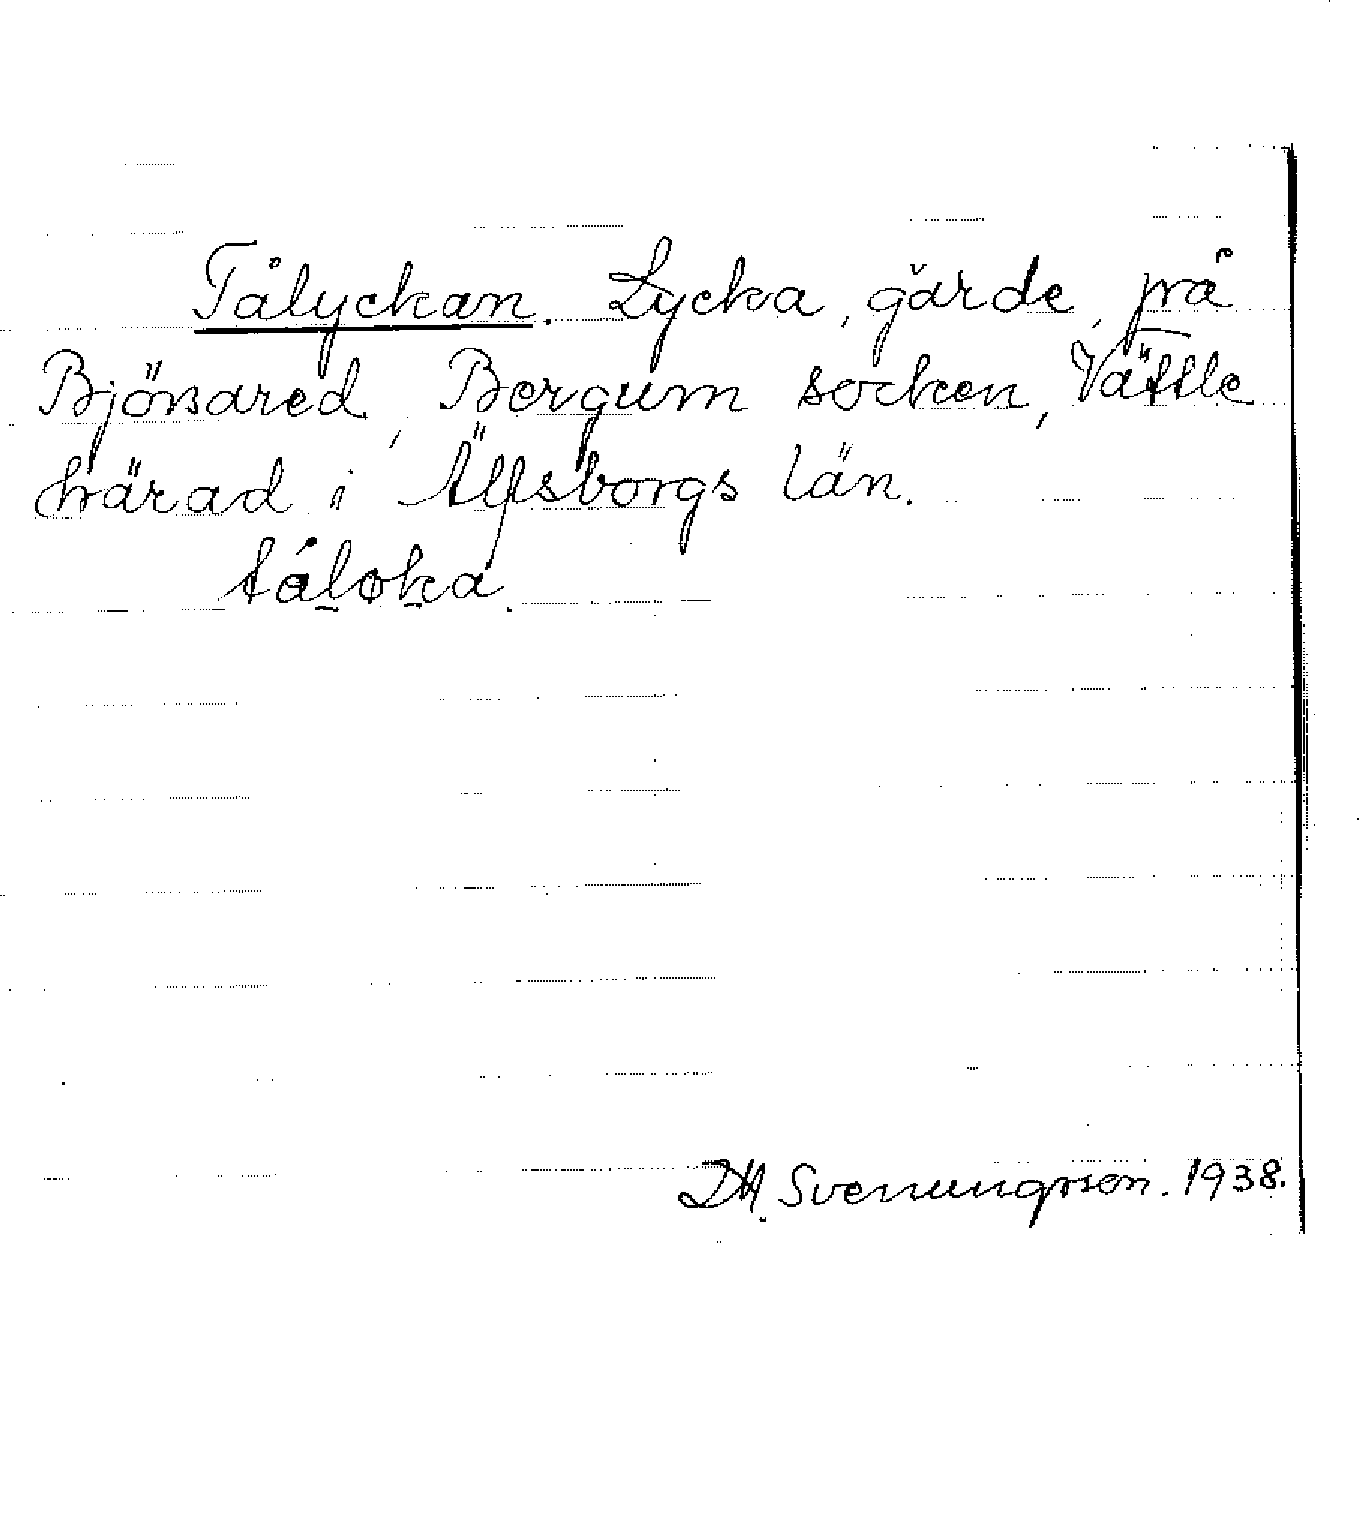 Tålyckan. Lycka, gärde, på
Björsared, Bergum socken, Vättle
härad i Älfsborgs län.
tåløka.
D.H. Svenungsson. 1938.